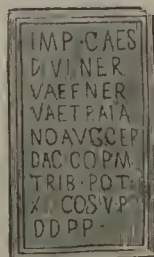 IMP·CAES
DIVI NER
VAE F NER
VAE TRAIA
NO AVG GER
DAC CO P.M.
TRIB·POT·
X COS V·P
DDPP·